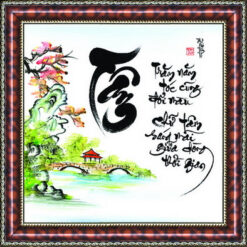 Tâm
Trăm năm
tóc cũng
đổi màu
Chữ Tâm
sáng mãi
giữa dòng
thời gian